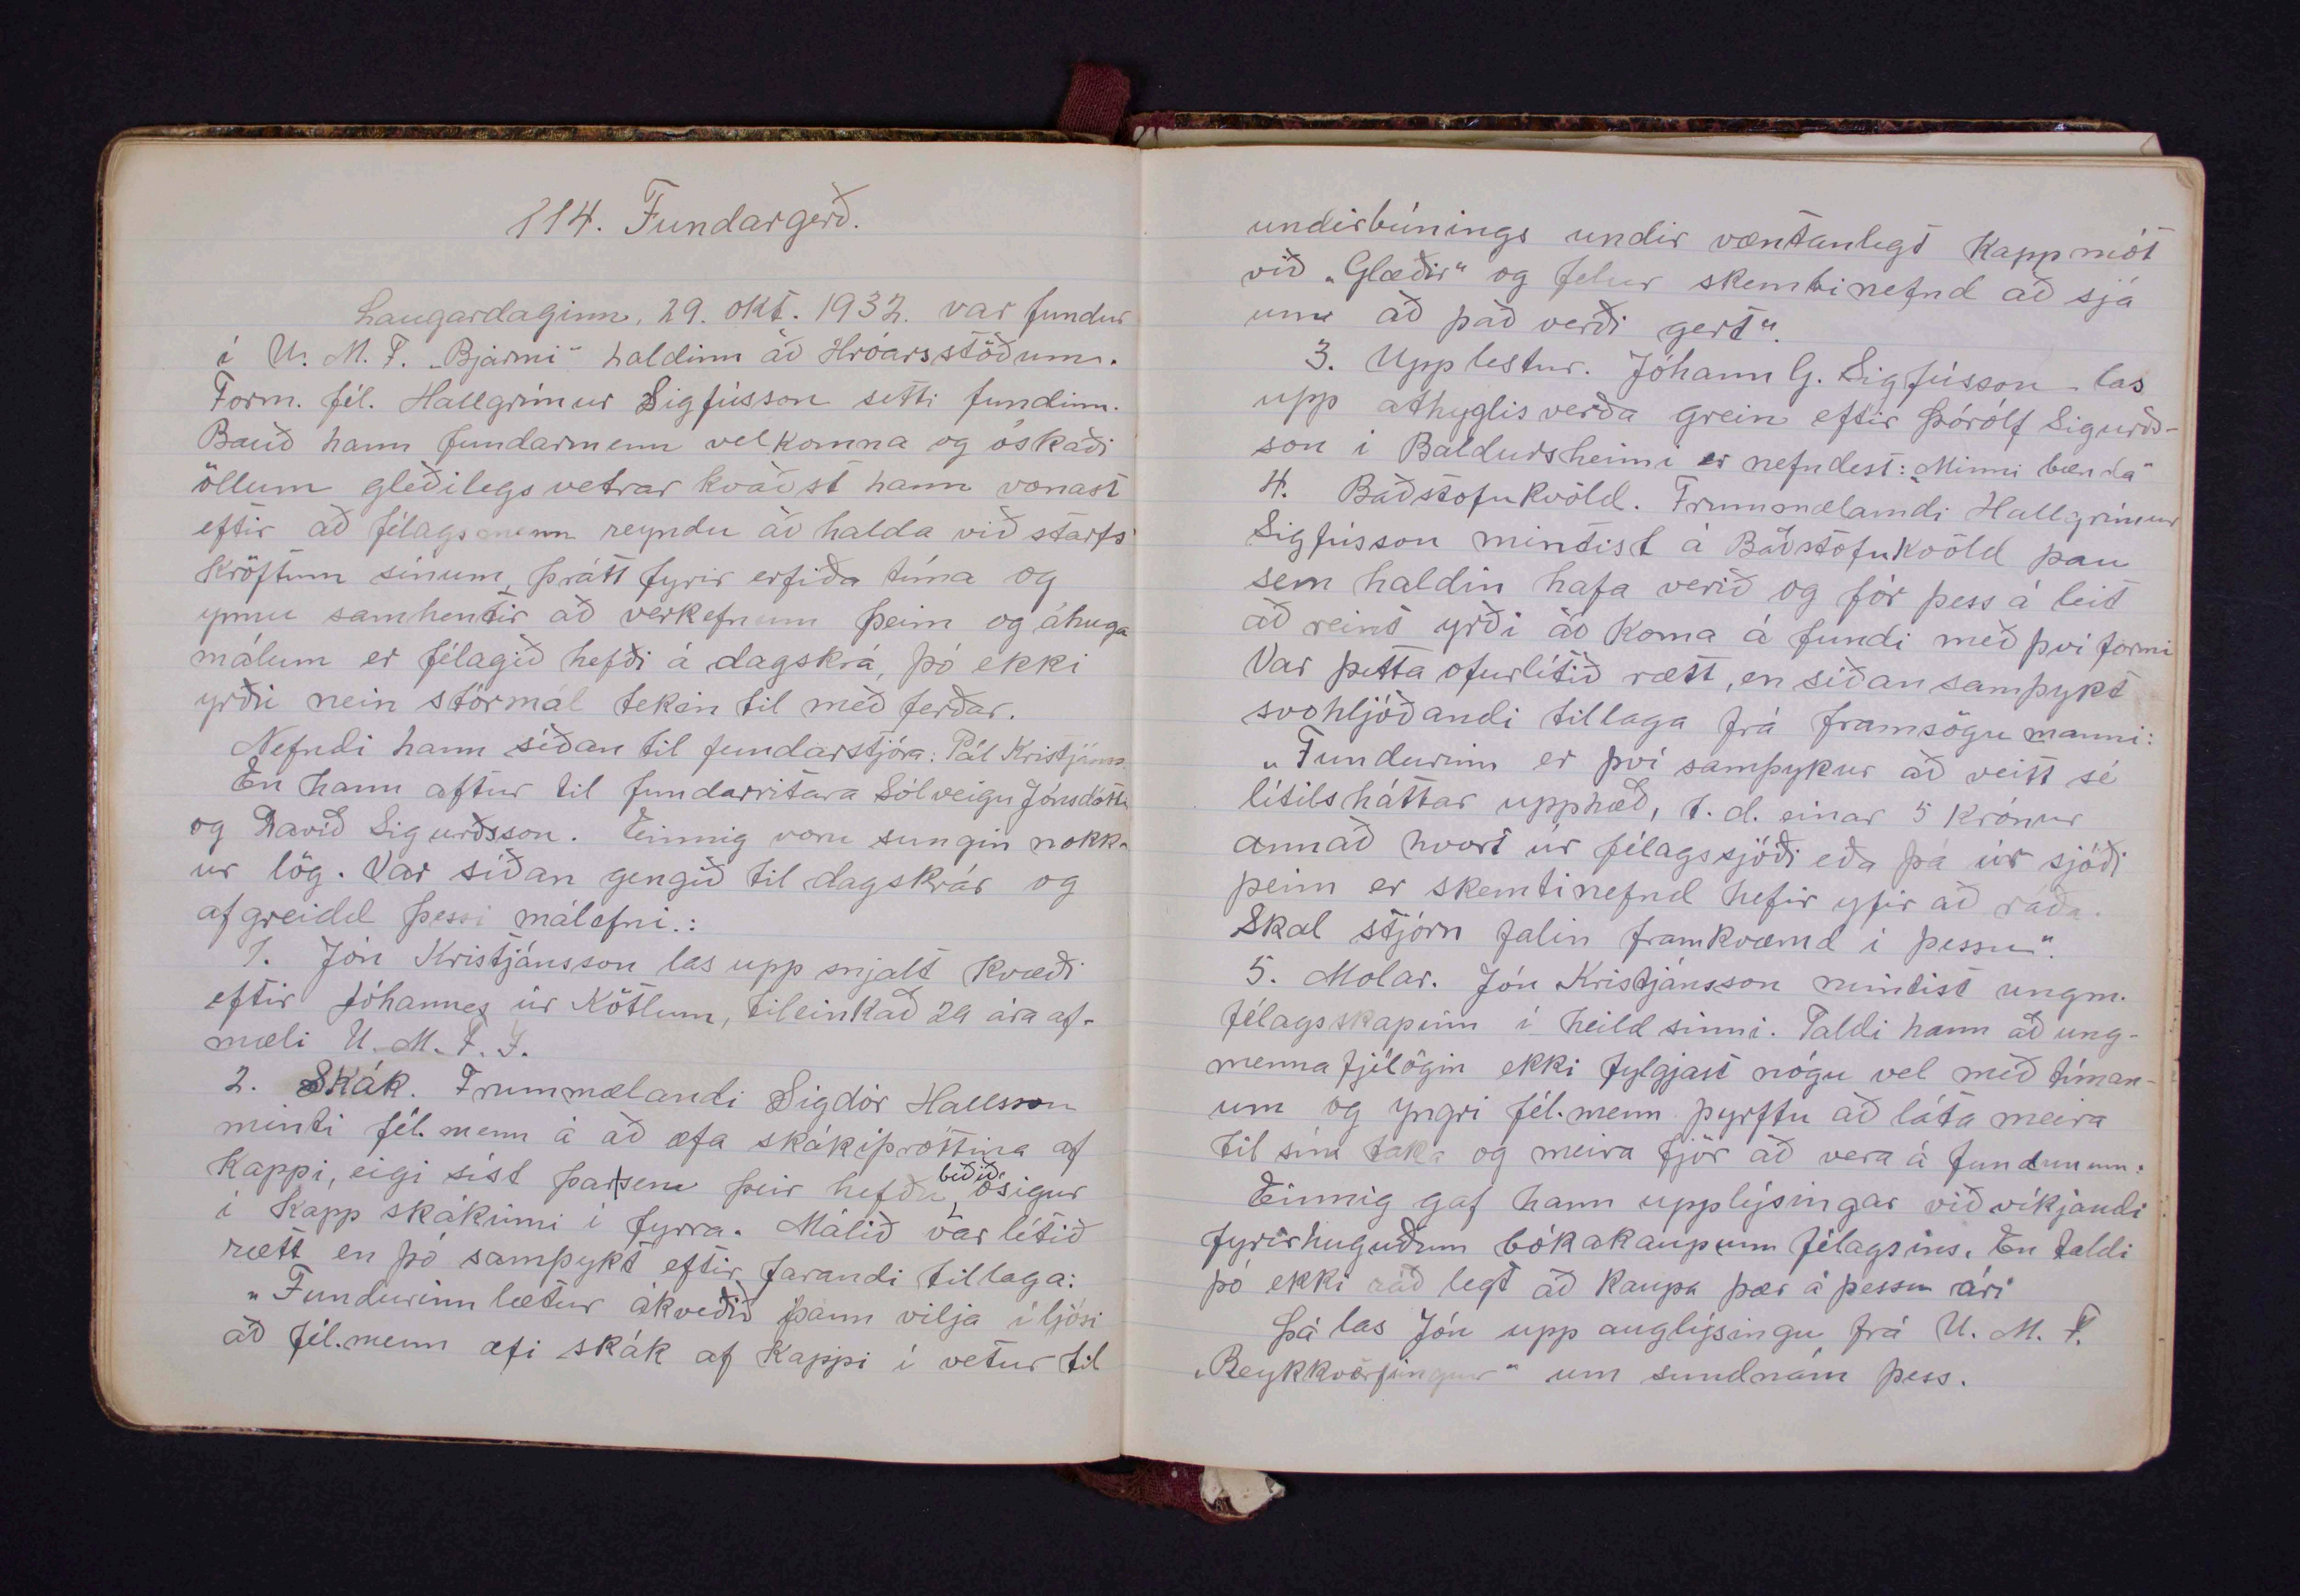 114. Fundargerð.
Laugardaginn, 29. okt. 1932. var fundur
í U. M. F. „Bjarmi" haldinn að Hróarsstöðum.
Form. fél. Hallgrímur Sigfússon setti fundinn.
Bauð hann fundarmenn velkomna og óskaði
öllum gleðilegs vetrar kvaðst hann vonast
eftir að félagsmenn reyndu að halda við starfs
kröftum sínum, þrátt fyrir erfiða tíma og
ynnu samhentir að verkefnum þeim og áhuga
málum er félagið hefði á dagskrá, þó ekki
yrði nein stórmál tekin til með ferðar.
Nefndi hann síðan til fundarstjóra: Pál Kristjáns.
En hann aftur til fundarritara Sólveigu Jónsdóttu
og Davíð Sigurðsson. Einnig voru sungin nokk-
ur lög. Var síðan gengið til dagskrár og
afgreidd þessi málefni.:
1. Jón Kristjánsson las upp snjalt kvæði
eftir Jóhannes úr Kötlum, tileinkað 20 ára af-
mæli U. M. F. Í.
2. Skák. Frummælandi Sigdór Hallsson
minti fél. menn á að æfa skákíþróttina af
kappi, eigi síst þar sem þeir hefðu beðið ósigur
í kapp skákinni í fyrra. Málið var lítið
rætt en þó samþykt eftir farandi tillaga:
„Fundurinn lætur ákveðið þann vilja í ljósi
að fél. menn æfi skák af kappi í vetur til
undirbúnings undir væntanlegt kappmót
við „Glæðir" og felur skemtinefnd að sjá
um að það verði gert".
3. Upplestur. Jóhann G. Sigfússon las
upp athyglisverða grein eftir Þórólf Sigurðs-
son í Baldursheimi er nefndest: „Minni bænda"
4. Baðstofukvöld. Frummælandi Hallgrímur
Sigfússon mintist á Baðstofukvöld þau
sem haldin hafa verið og fór þess á leit
að reint yrði að koma á fundi með því formi
Var þetta ofurlítið rætt, en síðan samþykt
svohljóðandi tillaga frá framsögu manni:
„Fundurinn er því samþykur að veitt sé
lítilsháttar upphæð, t.d. einar 5 krónur
annað hvort úr félagssjóði eða þá úr sjóði
þeim er skemtinefnd hefir yfir að ráða.
Skal stjórn falin framkvæmd í þessu".
5. Molar. Jón Kristjánsson mintist ungm.
félagsskapinn í heild sinni. Taldi hann að ung-
mennafjélögin ekki fylgjast nógu vel með tíman-
um og yngri fél. menn þyrftu að láta meira
til sín taka og meira fjör að vera á fundunum.
Einnig gaf hann upplýsingar viðvíkjandi
fyrirhuguðum bókakaupum félagsins. En taldi
þó ekki ráð legt að kaupa þær á þessu ári
Þá las Jón upp auglýsingu frá U. M. F.
„Reykhverfingur" um sundnám þess.